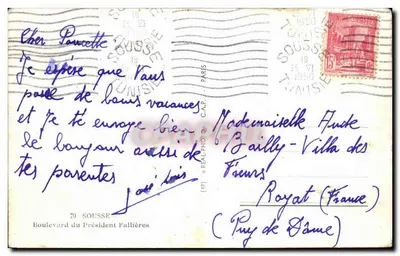 SOUSSE
TUNISIE
SOUSSE
TUNISIE
15
Cher Poucette
Je espère que Vous
passe de bons vacances
et Je te envoye bien
le bonjour aussi de
tes parentes
Mademoiselle Aude
Bailly - Villa des
Fleurs
Royat (France)
(Puy de Dôme)
C.A.P. - PARIS
70 SOUSSE
Boulevard du Président Fallières